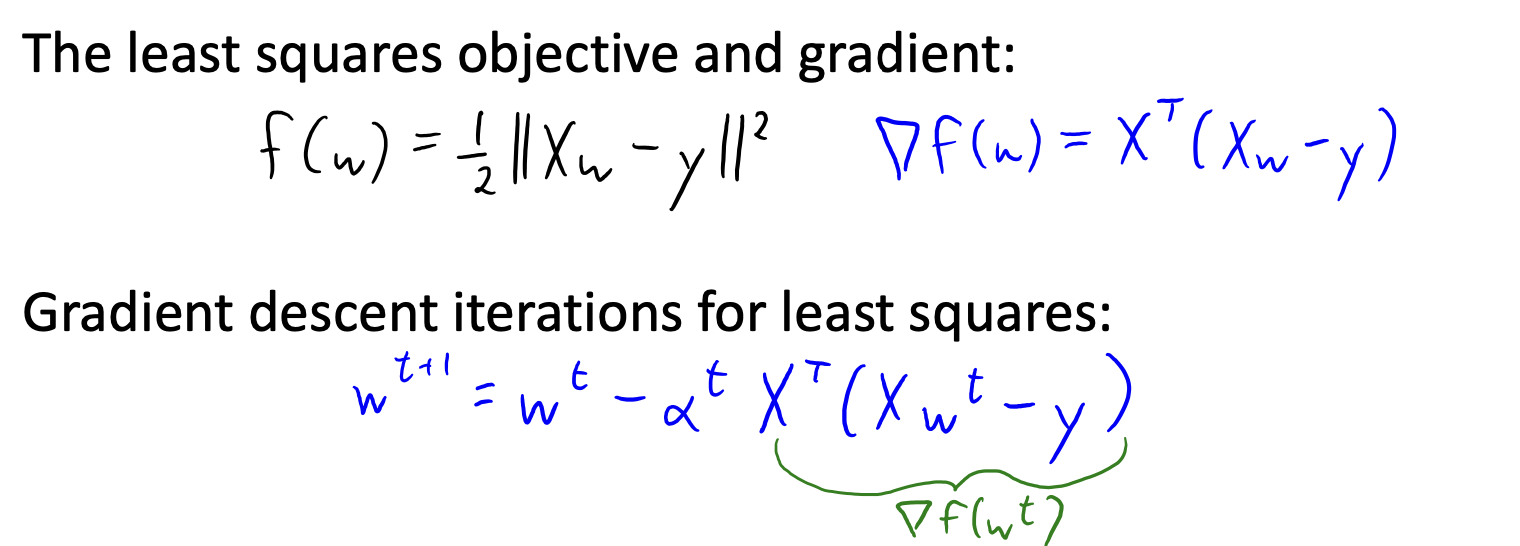 The least squares objective and gradient:
f(w) = 1/2 ||Xw - y||² ∇f(w) = Xᵀ(Xw - y)
Gradient descent iterations for least squares:
wᵗ⁺¹ = wᵗ - αᵗ Xᵀ(Xwᵗ - y)
∇f(wᵗ)